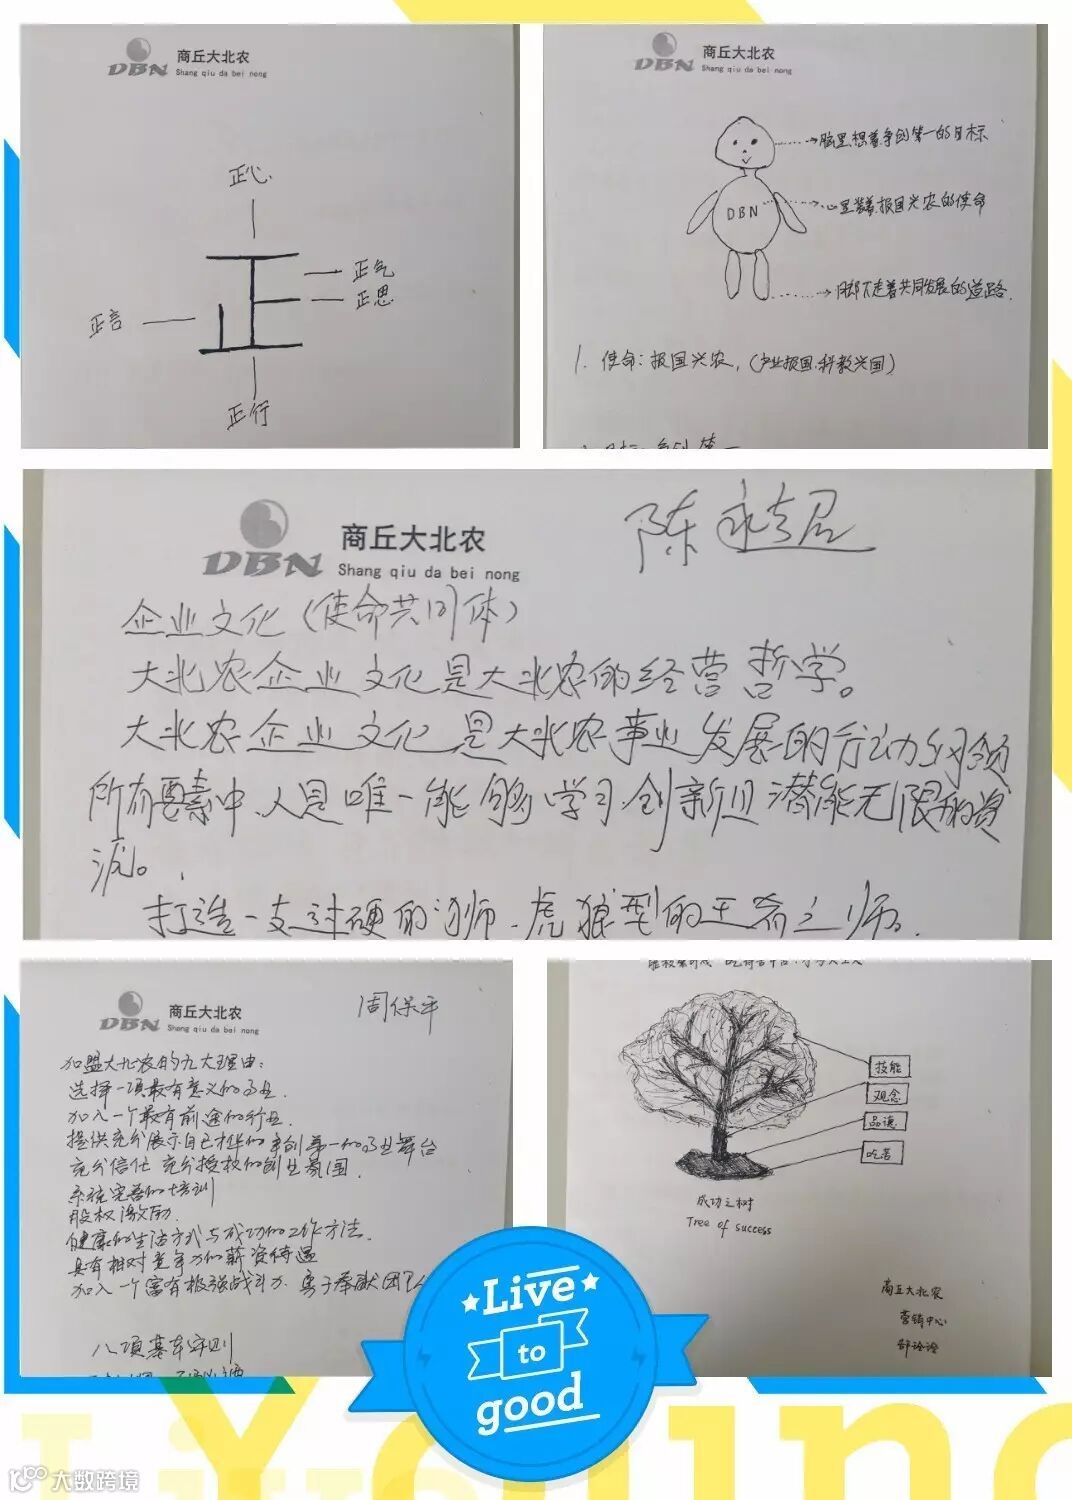 DBN 商丘大北农
Shang qiu da bei nong
正心
正气
正思
正言
正行
DBN 商丘大北农
Shang qiu da bei nong
脑里想着争创第一的目标
DBN
心里装着报国兴农的使命
脚下走着共同发展的道路
1. 使命：报国兴农，（产业报国、科教兴国）
DBN 商丘大北农
Shang qiu da bei nong
陈永超
企业文化（使命共同体）
大北农企业文化是大北农的经营哲学。
大北农企业文化是大北农事业发展的行动纲领
所有要素中、人是唯一能够学习、创新且潜能无限的资
源。
打造一支过硬的 师、虎狼型的王者之师。
DBN 商丘大北农
Shang qiu da bei nong
周保平
加盟大北农的九大理由：
选择一项最有意义的事业.
加入一个最有前途的行业.
提供充分展示自己才华的争创第一的事业舞台
充分信任 充分授权的创业氛围.
系统完善的培训
股权激励.
健康的生活方式与成功的工作方法.
具有相对竞争力的薪资待遇
加入一个富有极强战斗力、勇于奉献团
八项基本守则
技能
观念
品德
吃苦
成功之树
Tree of success
商丘大北农
营销中心
Live
to
good
Young
大数跨境